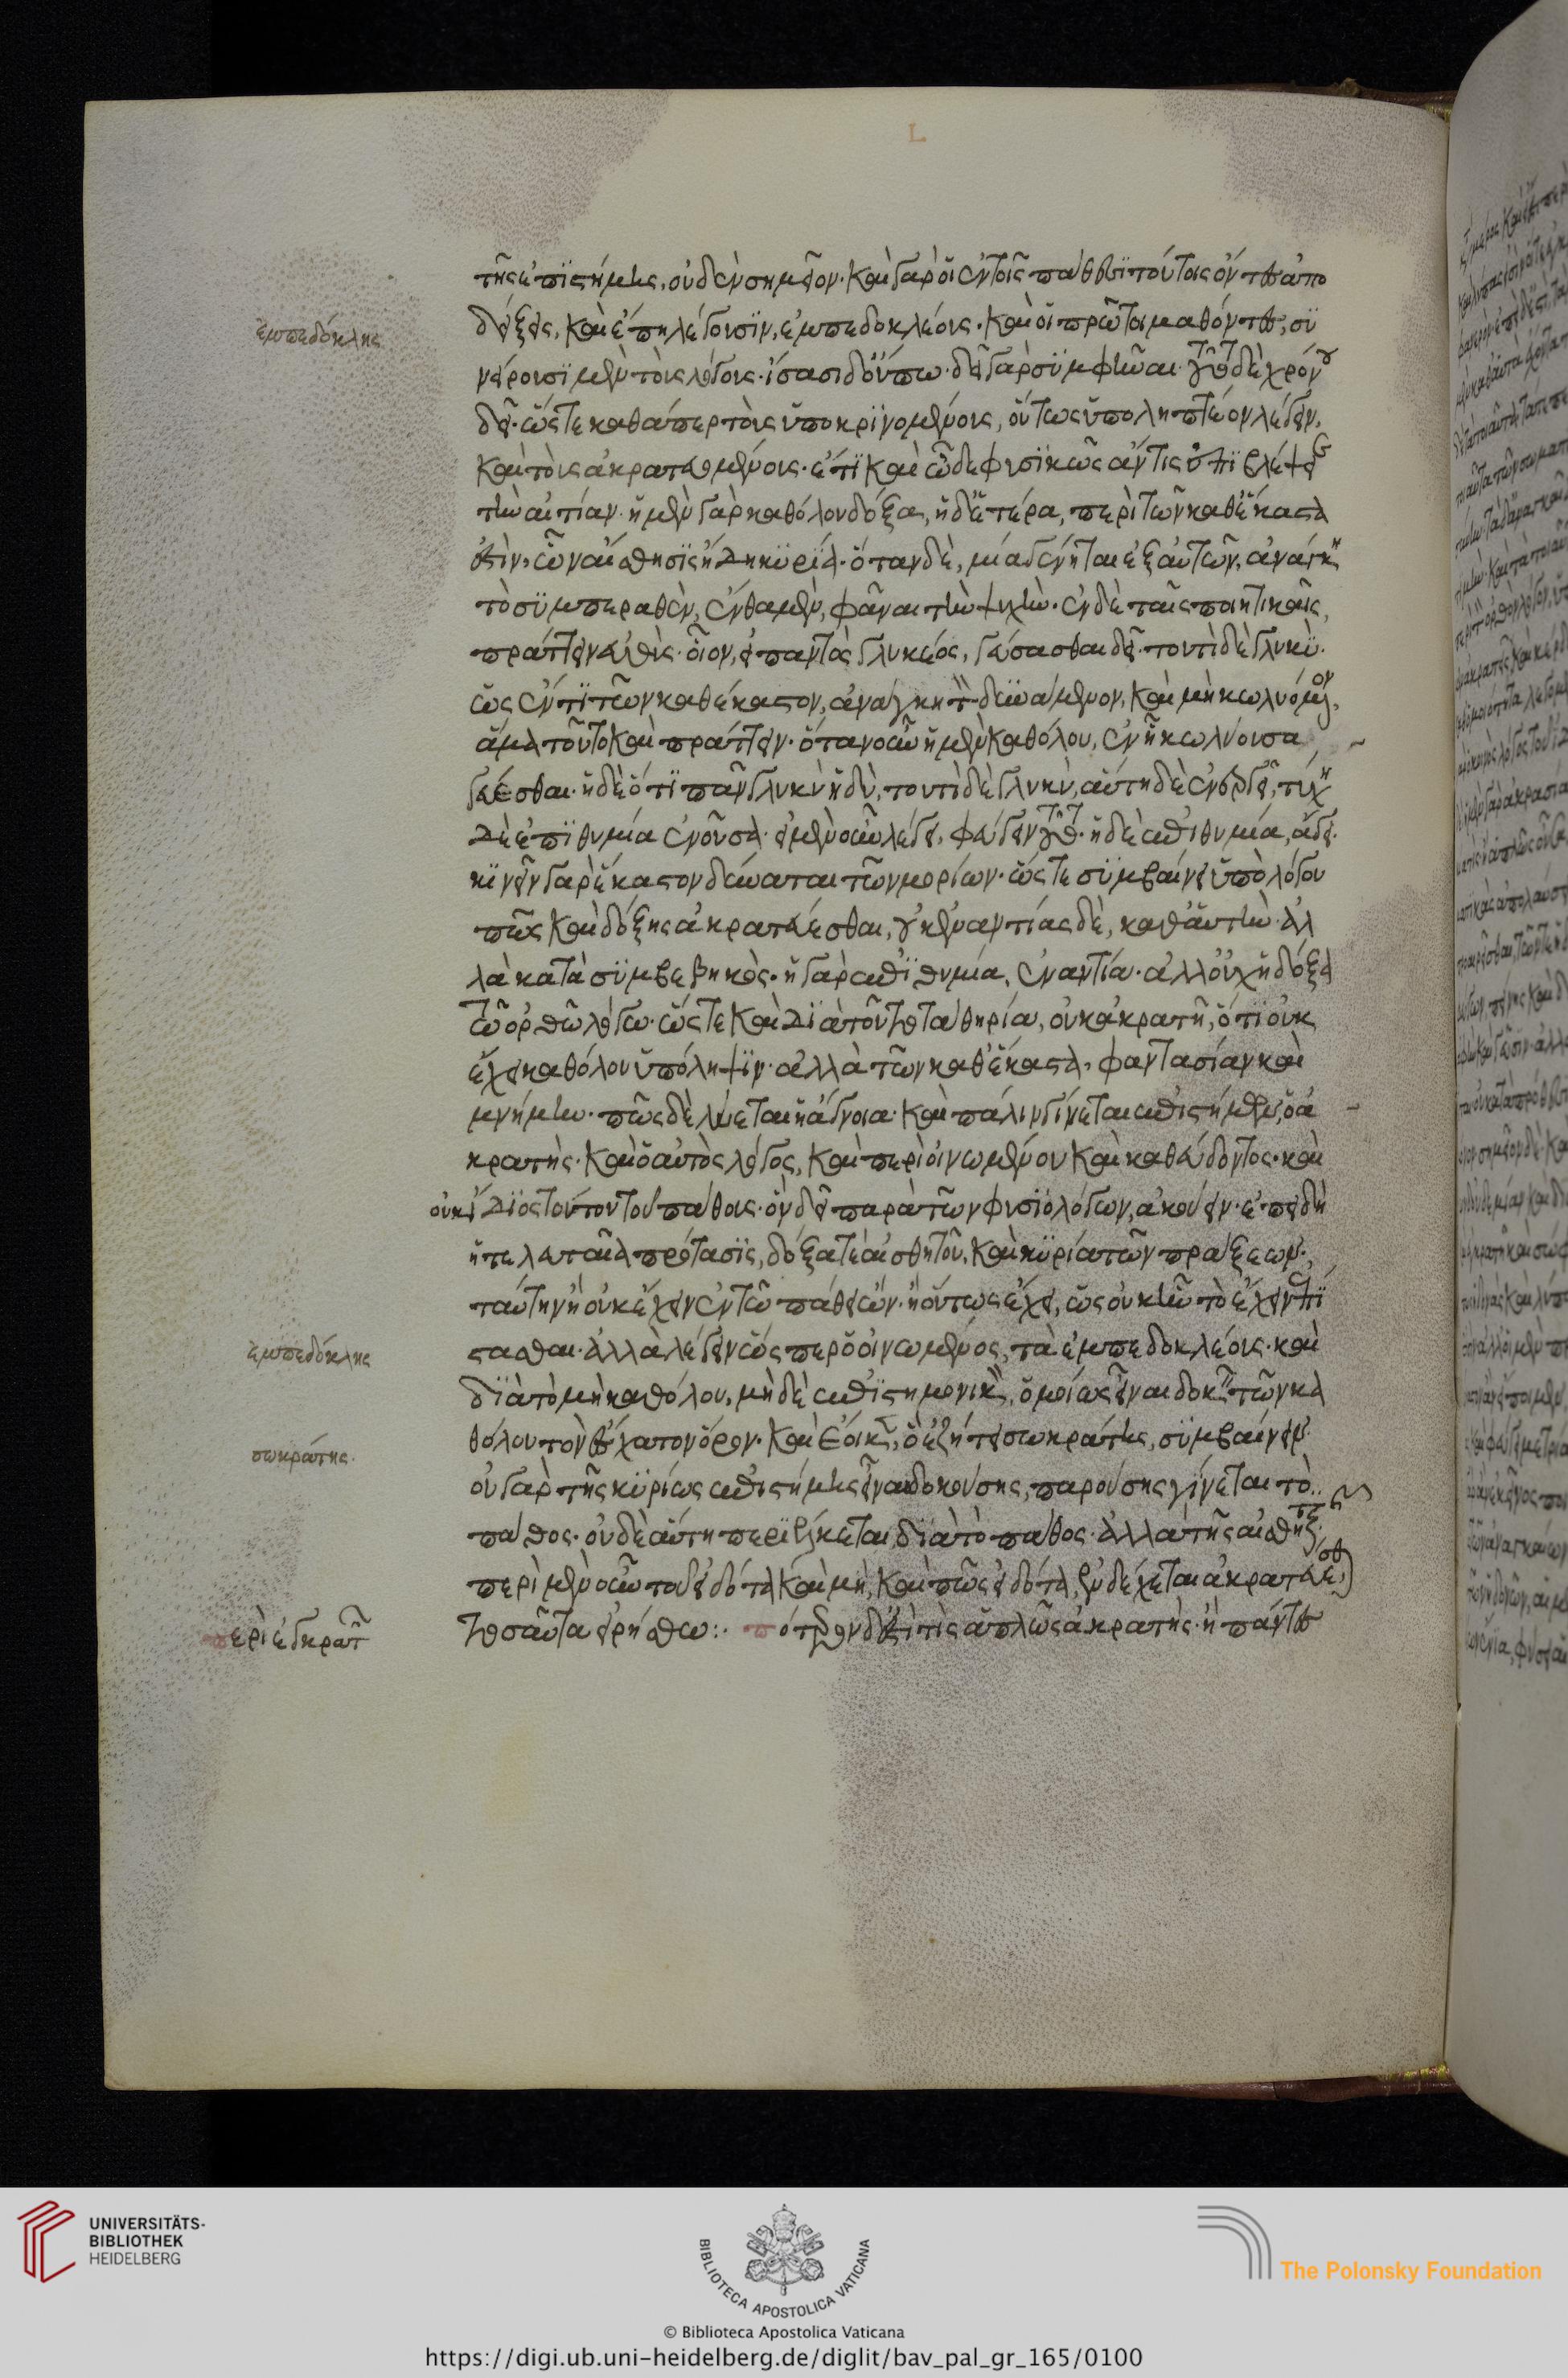 τῆς ἐπιστήμης, οὐδὲν σημεῖον· καὶ γὰρ οἱ ἐν τοῖς πάθεσι τούτοις ὄντες ἀπο
δείξεις, καὶ ἔπη λέγουσιν, ἐμπεδοκλέους· καὶ οἱ πρῶτοι μαθόντες, συ
ἐμπεδόκλης
νείρουσι μὲν τοὺς λόγους· ἴσασι δ' οὔπω· δεῖ γὰρ συμφυῶαι· τούτω δὲ χρόνου
δεῖ· ὥστε καθάπερ τοὺς ὑποκρινομένους, οὕτως ὑποληπτέον λέγειν,
καὶ τοὺς ἀκρατευομένους· ἔτι καὶ ὧδε φυσικῶς ἄν τις ἐπιβλέψειε
τὴν αἰτίαν· ἡ μὲν γὰρ καθόλου δόξα, ἡ δ' ἑτέρα, περὶ τῶν καθ' ἕκαστα
ἐστὶν, ὧν αἴσθησις ἤδη κυρία· ὅταν δὲ, μία γένηται ἐξ αὐτῶν, ἀνάγκη
τὸ συμπερανθὲν, ἔνθα μὲν, φάναι τὴν ψυχὴν· ἐν δὲ ταῖς ποιητικαῖς,
πράττειν εὐθὺς· οἷον, εἰ παντὸς γλυκέος, γεύσασθαι δεῖ· τουτὶ δὲ γλυκὺ·
ὡς ἕν τι τῶν καθέκαστον, ἀνάγκη τὸν δυνάμενον, καὶ μὴ κωλυόμενον,
ἅμα τοῦτο καὶ πράττειν· ὅταν οὖν ἡ μὲν καθόλου, ἐνῆ κωλύουσα
γεύεσθαι· ἡ δὲ ὅτι πᾶν γλυκὺ ἡδὺ, τουτὶ δὲ γλυκὺ, αὕτη δὲ ἐνεργεῖ, τύχη
δὲ ἐπιθυμία ἐνοῦσα· ἡ μὲν οὖν λέγει, φεύγειν τοῦτο· ἡ δὲ ἐπιθυμία, ἄγει·
κινεῖν γὰρ ἕκαστον δύναται τῶν μορίων· ὥστε συμβαίνει ὑπὸ λόγου
πως καὶ δόξης ἀκρατεύεσθαι, οὐκ ἐναντίας δὲ, καθ' αὑτὴν· ἀλ
λὰ κατὰ συμβεβηκὸς· ἡ γὰρ ἐπιθυμία, ἐναντία· ἀλλ' οὐχ ἡ δόξα
τῶ ὀρθῶ λόγω· ὥστε καὶ διὰ τοῦτο τὰ θηρία, οὐκ ἀκρατῆ, ὅτι οὐκ
ἔχει καθόλου ὑπόληψιν· ἀλλὰ τῶν καθ' ἕκαστα, φαντασίαν καὶ
μνήμην· πῶς δὲ λύεται ἡ ἄγνοια· καὶ πάλιν γίνεται ἐπιστήμων, ὁ ἀ
κρατὴς· καὶ ὁ αὐτὸς λόγος, καὶ περὶ οἰνωμένου καὶ καθεύδοντος· καὶ
οὐκ ἴδιος τούτου τοῦ πάθους· ὃν δεῖ παρὰ τῶν φυσιολόγων, ἀκούειν· ἐπειδὴ
ἡ τελευταία πρότασις, δόξα τε αἰσθητοῦ, καὶ κυρία τῶν πράξεων·
ταύτην ἢ οὐκ ἔχειν ἐν τῶ πάθει ὤν· ἢ οὕτως ἔχει, ὡς οὐκ ἦν τὸ ἔχειν ἐπί
στασθαι· ἀλλὰ λέγειν ὥσπερ ὁ οἰνωμένος, τὰ ἐμπεδοκλέους· καὶ
ἐμπεδόκλης
διὰ τὸ μὴ καθόλου, μὴ δὲ ἐπιστημονικὸν, ὁμοίως εἶναι δοκεῖν τῶν κα
θόλου τὸν ἔσχατον ὅρον· καὶ ἔοικεν, ὃ ἐζήτει σωκράτης, συμβαίνειν·
σωκράτης·
οὐ γὰρ τῆς κυρίως ἐπιστήμης εἶναι δοκούσης, παρούσης γίνεται τὸ
πάθος· οὐδὲ αὕτη περιέλκεται διὰ τὸ πάθος· ἀλλὰ τῆς αἰσθητικῆς·
περὶ μὲν οὖν τοῦ εἰδότα καὶ μὴ, καὶ πῶς εἰδότα, ἐνδέχεται ἀκρατεύεσθαι
τοσαῦτα εἰρήσθω:· πότερον δ' ἐστί τις ἁπλῶς ἀκρατὴς· ἢ πάντες
περὶ ἐγκρατ
UNIVERSITÄTS-
BIBLIOTHEK
HEIDELBERG
BIBLIOTECA APOSTOLICA VATICANA
The Polonsky Foundation
© Biblioteca Apostolica Vaticana
https://digi.ub.uni-heidelberg.de/diglit/bav_pal_gr_165/0100